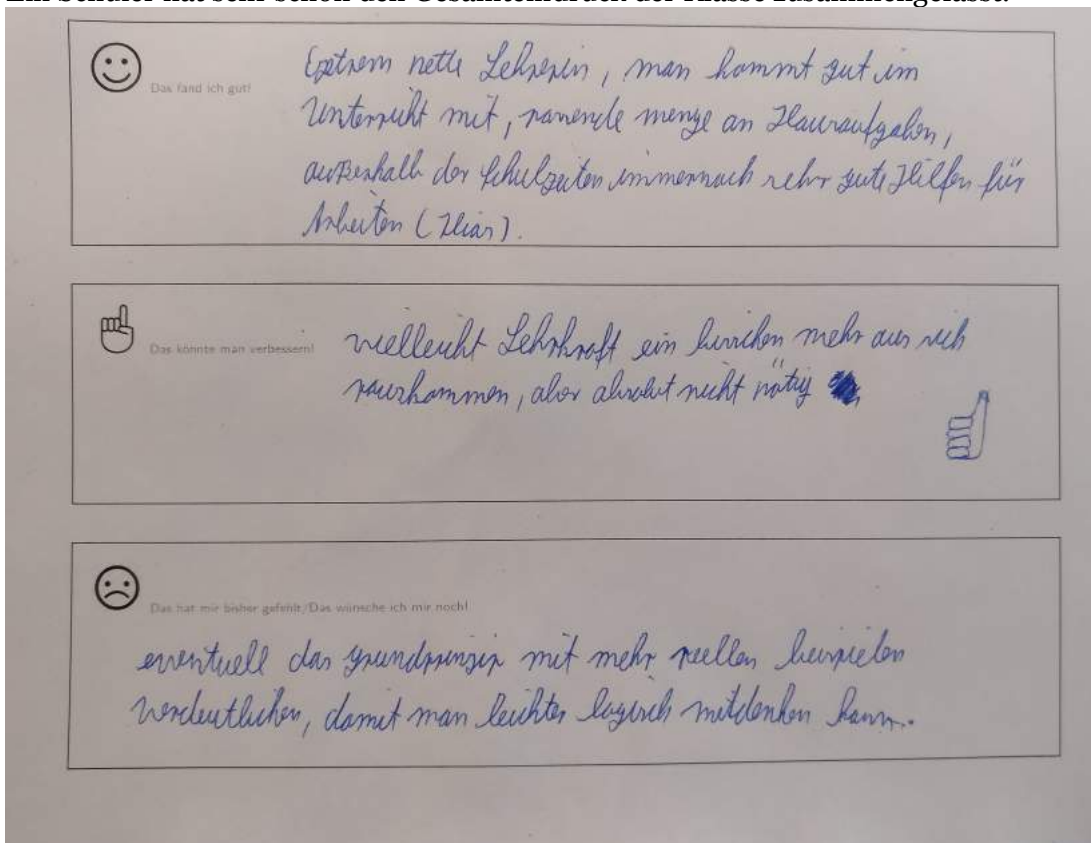 Ein Schüler hat sehr schön den Gesamteindruck der Klasse zusammengefasst:
Das fand ich gut!
Extrem nette Lehrerin, man kommt gut im
Unterricht mit, passende menge an Hausaufgaben,
außerhalb der Schulzeiten immernoch sehr gute Hilfen für
Arbeiten (Ilias).
Das könnte man verbessern!
vielleicht Lehrkraft ein bisschen mehr aus sich
rauskommen, aber absolut nicht nötig
Das hat mir bisher gefehlt/Das wünsche ich mir noch!
eventuell das grundprinzip mit mehr reellen beispielen
verdeutlichen, damit man leichter logisch mitdenken kann.